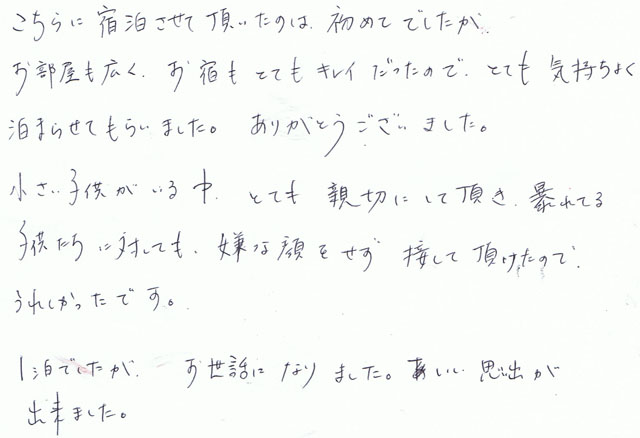 こちらに宿泊させて頂いたのは、初めてでしたが
お部屋も広く、お宿もとてもキレイだったので、とても気持ちよく
泊まらせてもらいました。ありがとうございました。
小さい子供がいる中、とても親切にして頂き、暴れてる
子供たちに対しても、嫌な顔をせず接して頂けたので、
うれしかったです。
1泊でしたが、お世話になりました。いい思出が
出来ました。